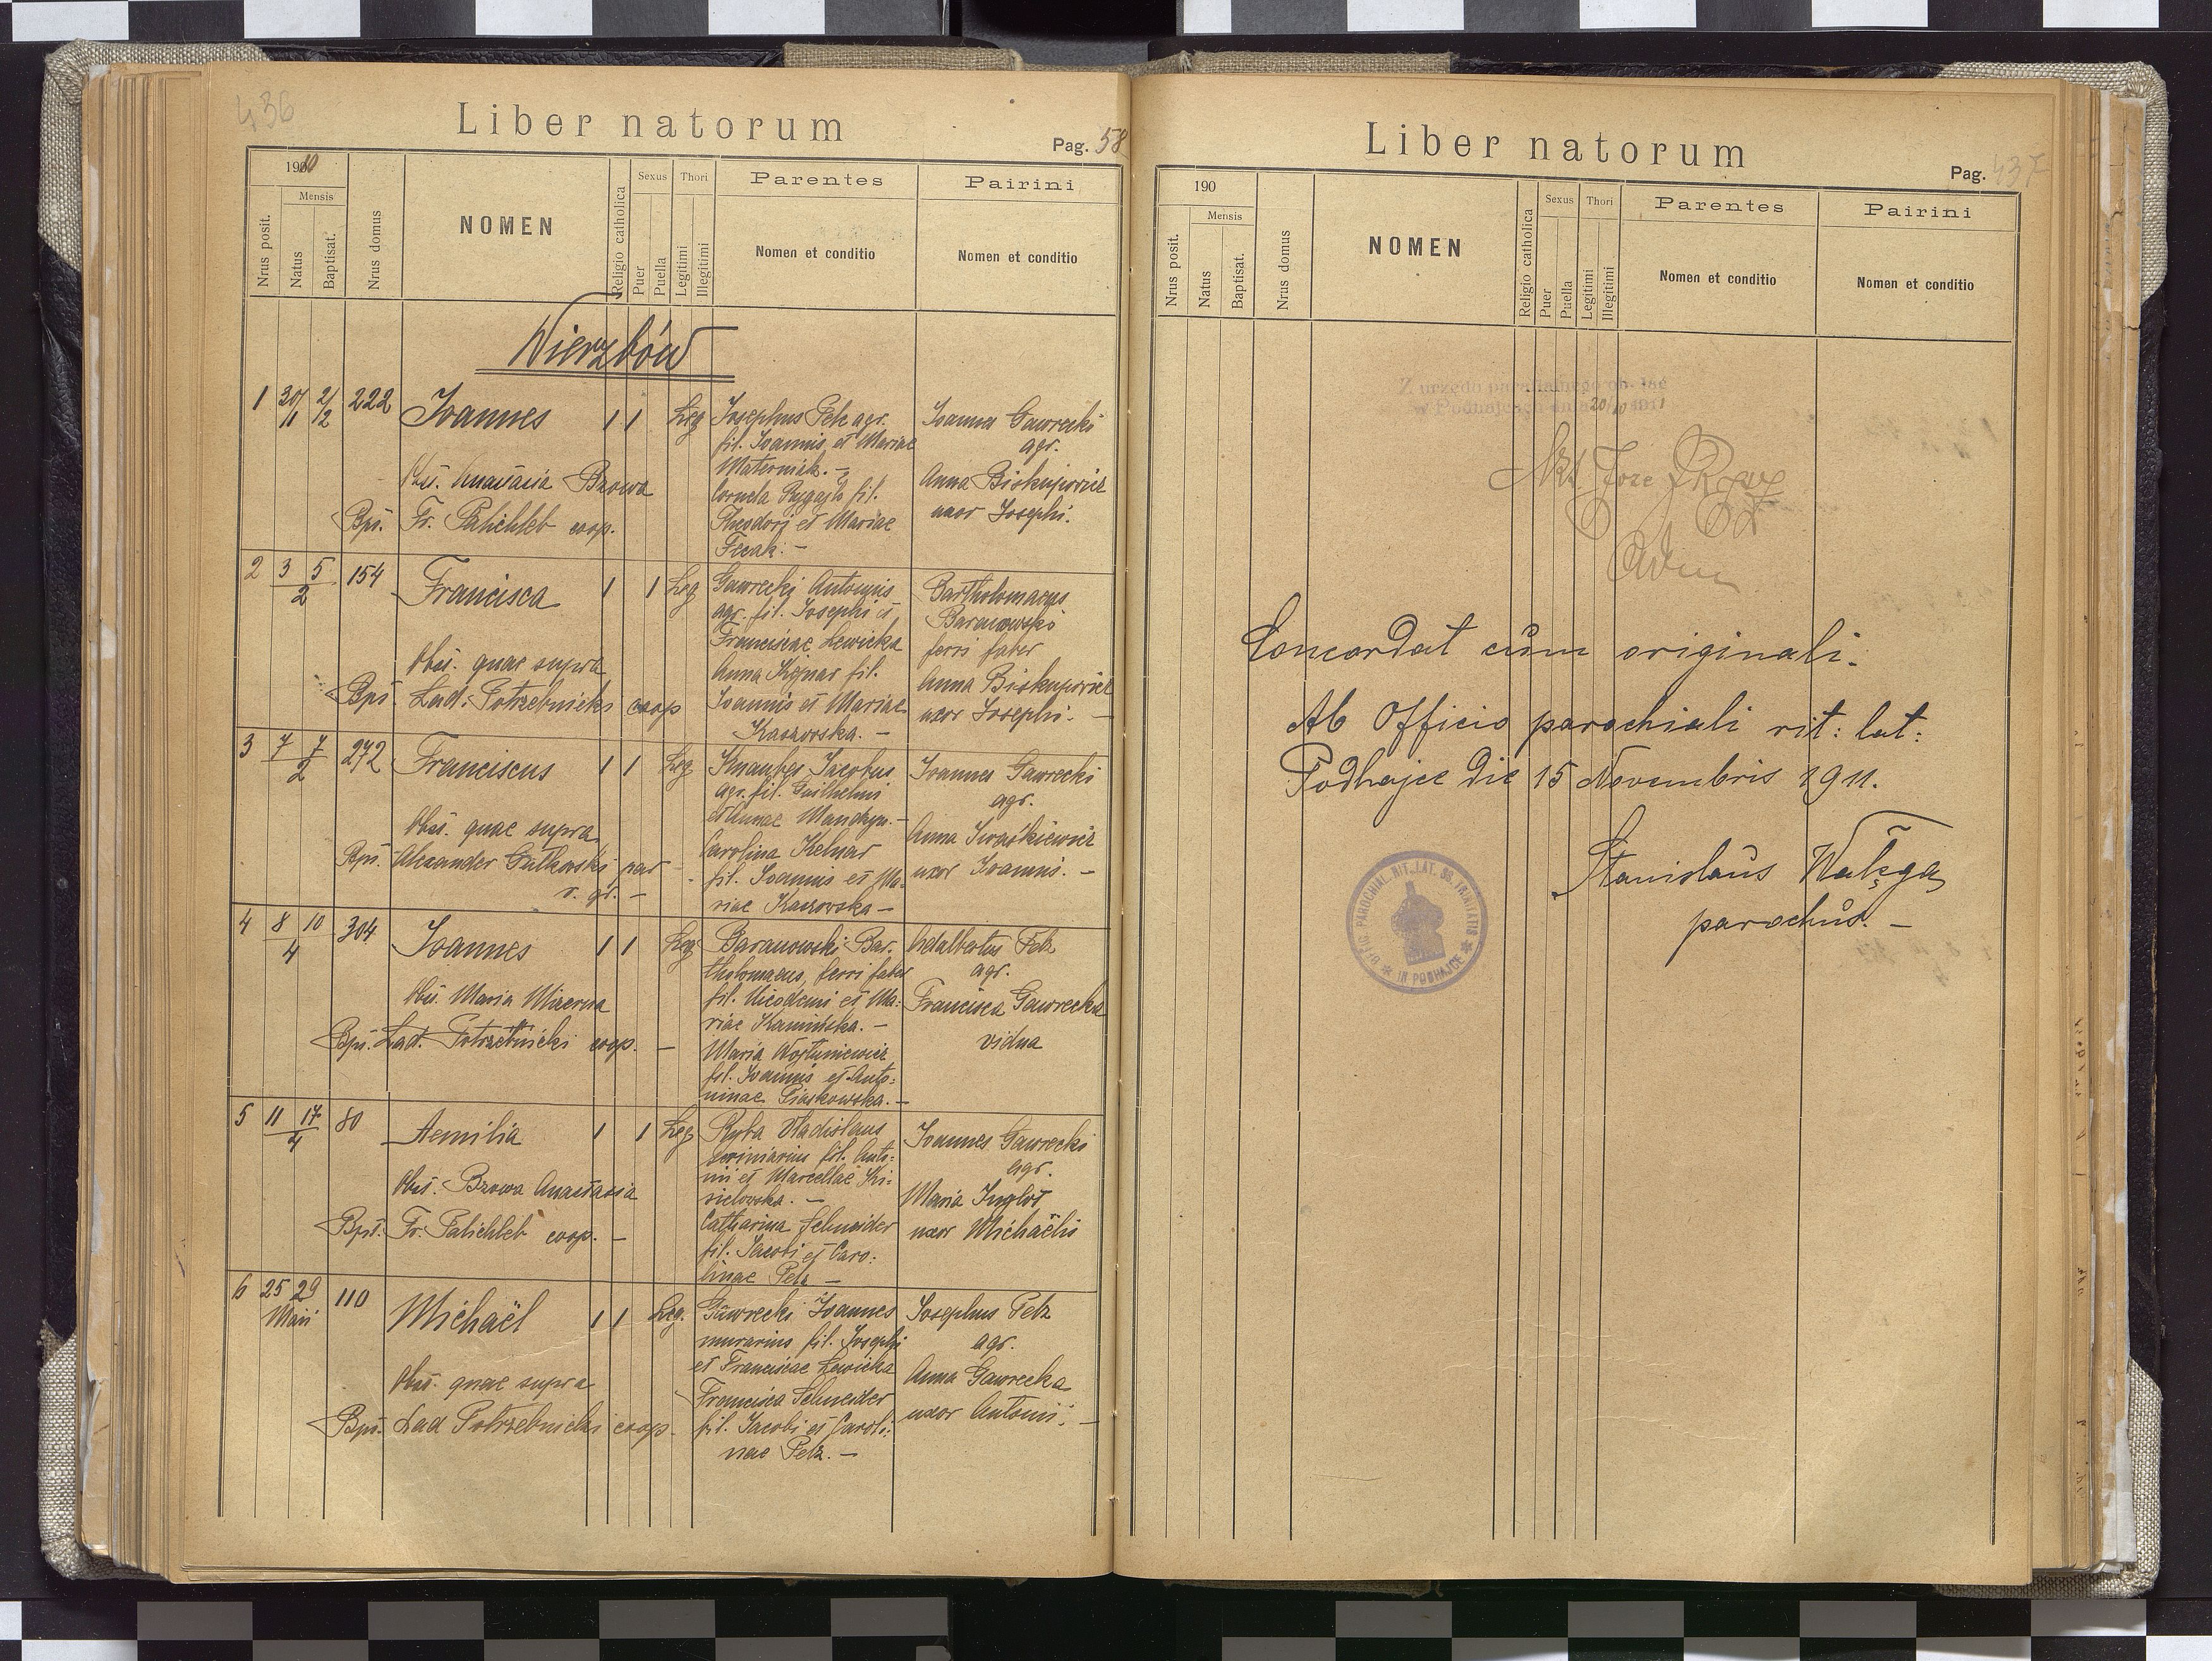 436
Liber natorum
Pag. 58
1910
Mensis
Nrus posit.
Natus
Baptisat.
Nrus domus
NOMEN
Religio catholica
Sexus
Puer
Puella
Thori
Legitimi
Illegitimi
Parentes
Nomen et conditio
Pairini
Nomen et conditio
Wierzbów
1 30/1 2/2 222 Joannes 1 1 Leg
Obst. Anastasia Bzowa
Bpt. Fr. Palichleb coop.
Josephus Pelz agr.
fil. Joannis et Mariae
Materniak. -
Cornela Pygajło fil.
Theodori et Mariae
Joannes Gawrecki
agr.
Anna Biskupowicz
uxor Josephi.
2 3 5 2 154 Francisca 1 1 Leg
Obst. quae supra
Bpt. Lad. Potrzebnicki coop
Gawrecki Antonius
agr. fil. Josephi et
Franciscae Lewicka
Anna Kelnar fil.
Joannis et Mariae
Kaszowska. -
Bartholomaeus
Baranowski
ferri faber
Anna Biskupowicz
uxor Josephi. -
3 7 7 2 272 Franciscus 1 1 Leg
Obst. quae supra
Bpt. Alexander Gutkowski par
r. gr. -
Knauber Jacobus
agr. fil. Guilhelmi
et Annae Mandryn. -
Carolina Kelnar
fil. Joannis et Ma-
riae Kaszowska -
Joannes Gawrecki
agr.
Anna Iwaśkiewicz
uxor Joannis. -
4 8 10 4 304 Joannes 1 1 Leg
Obst. Maria Mizerna
Bpt. Lad. Potrzebnicki coop. -
Baranowski Bar-
tholomaeus, ferri faber
fil. Nicodemi et Ma-
riae Kamińska. -
Maria Wojtuniewicz
fil. Joannis et Anto-
ninae Piaskowska. -
Adalbertus Pelz
agr.
Francisca Gawrecka
vidua
5 11 17 4 80 Aemilia 1 1 Leg
Obst. Bzowa Anastasia
Bpt. Fr. Palichleb coop. -
Ryba Vladislaus
fil. Anto-
nii et Marcellae Ki-
sielowska. -
Catharina Schneider
fil. Jacobi et Caro-
linae Pelz -
Joannes Gawrecki
agr.
Maria Inglot
uxor Michaëlis
6 25 29 Maii 110 Michaël 1 1 Leg.
Obst. quae supra
Bpt. Lad Potrzebnicki coop -
Gawrecki Joannes
murarius fil. Josephi
et Franciscae Lewicka
Francisca Schneider
fil. Jacobi et Caroli-
nae Pelz. -
Josephus Pelz
agr.
Anna Gawrecka
uxor Antonii. -
Liber natorum
Pag. 437
190
Mensis
Nrus posit.
Natus
Baptisat.
Nrus domus
NOMEN
Religio catholica
Sexus
Puer
Puella
Thori
Legitimi
Illegitimi
Parentes
Nomen et conditio
Pairini
Nomen et conditio
Z urzędu parafialnego ob. łać
w Podhajcach dnia 20/10 1911
Concordat cum originali.
Ab Officio parochiali rit: lat:
Podhajce die 15 Novembris 1911.
Stanislaus Wałęga
parochus. -
OFFIC. PAROCHIAL. RIT. LAT. SS. TRINITATIS
IN PODHAJCE